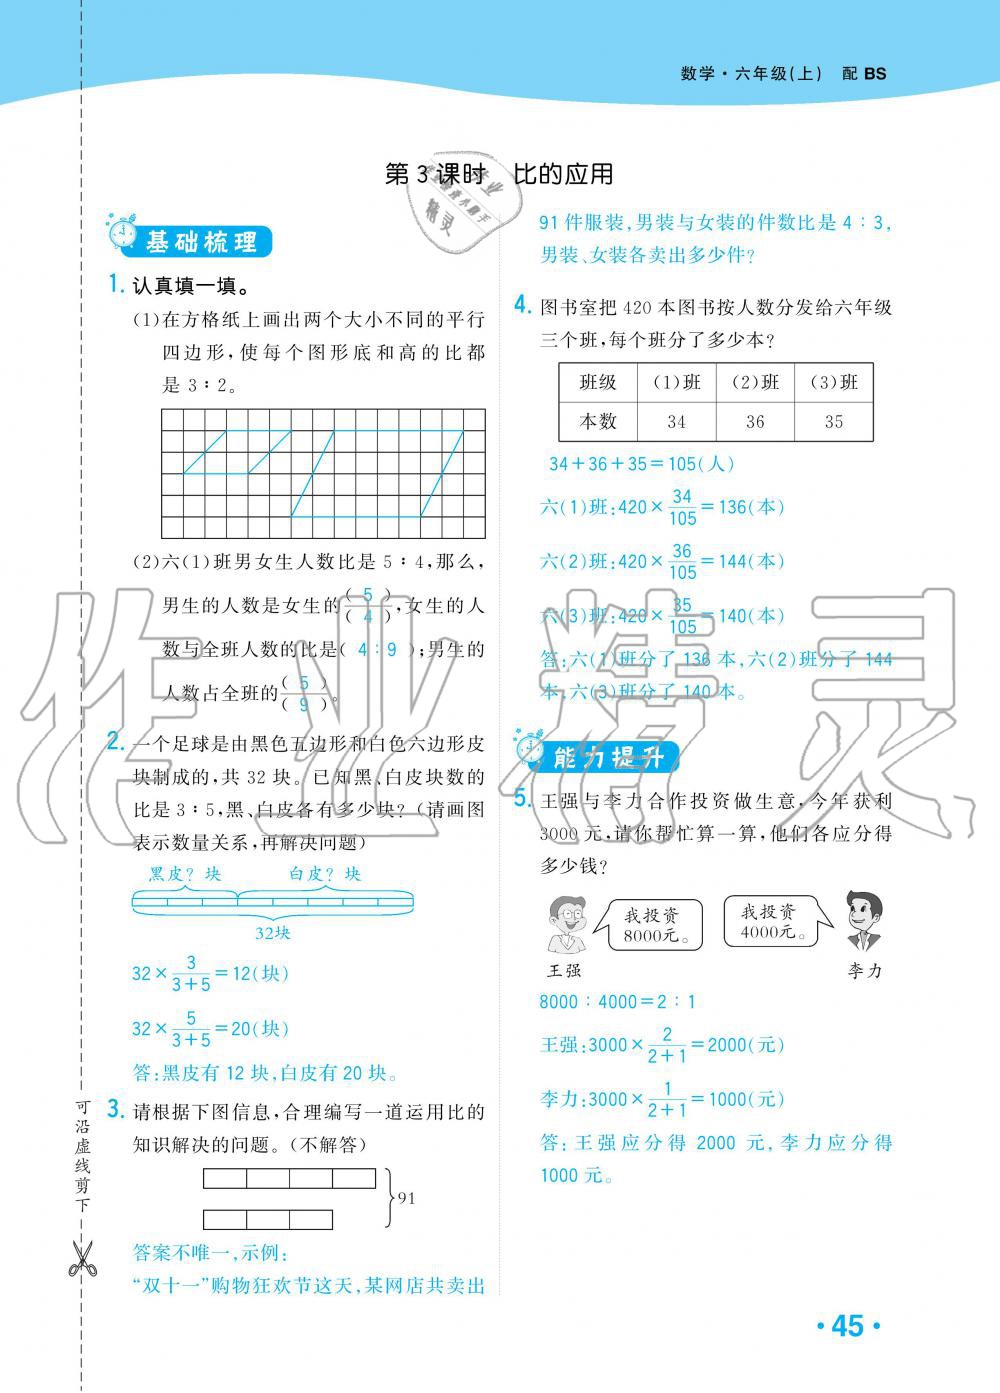 数学·六年级(上) 配 BS
第 3 课时 比的应用
基础梳理
1. 认真填一填。
(1)在方格纸上画出两个大小不同的平行
四边形,使每个图形底和高的比都
是 3∶2。
(2)六(1)班男女生人数比是 5∶4,那么,
男生的人数是女生的(5)/(4),女生的人
数与全班人数的比是(4∶9);男生的
人数占全班的(5)/(9)。
2. 一个足球是由黑色五边形和白色六边形皮
块制成的,共 32 块。已知黑、白皮块数的
比是 3∶5,黑、白皮各有多少块?(请画图
表示数量关系,再解决问题)
黑皮?块 白皮?块
32块
32×3/(3+5)=12(块)
32×5/(3+5)=20(块)
答:黑皮有 12 块,白皮有 20 块。
3. 请根据下图信息,合理编写一道运用比的
知识解决的问题。(不解答)
91
答案不唯一,示例:
“双十一”购物狂欢节这天,某网店共卖出
91 件服装,男装与女装的件数比是 4∶3,
男装、女装各卖出多少件?
4. 图书室把 420 本图书按人数分发给六年级
三个班,每个班分了多少本?
班级 (1)班 (2)班 (3)班
本数 34 36 35
34+36+35=105(人)
六(1)班:420×34/105=136(本)
六(2)班:420×36/105=144(本)
六(3)班:420×35/105=140(本)
答:六(1)班分了 136 本,六(2)班分了 144
本,六(3)班分了 140 本。
能力提升
5. 王强与李力合作投资做生意,今年获利
3000 元,请你帮忙算一算,他们各应分得
多少钱?
我投资
8000元。
我投资
4000元。
王强 李力
8000∶4000=2∶1
王强:3000×2/(2+1)=2000(元)
李力:3000×1/(2+1)=1000(元)
答:王强应分得 2000 元,李力应分得
1000 元。
可沿虚线剪下
·45·
作业精灵